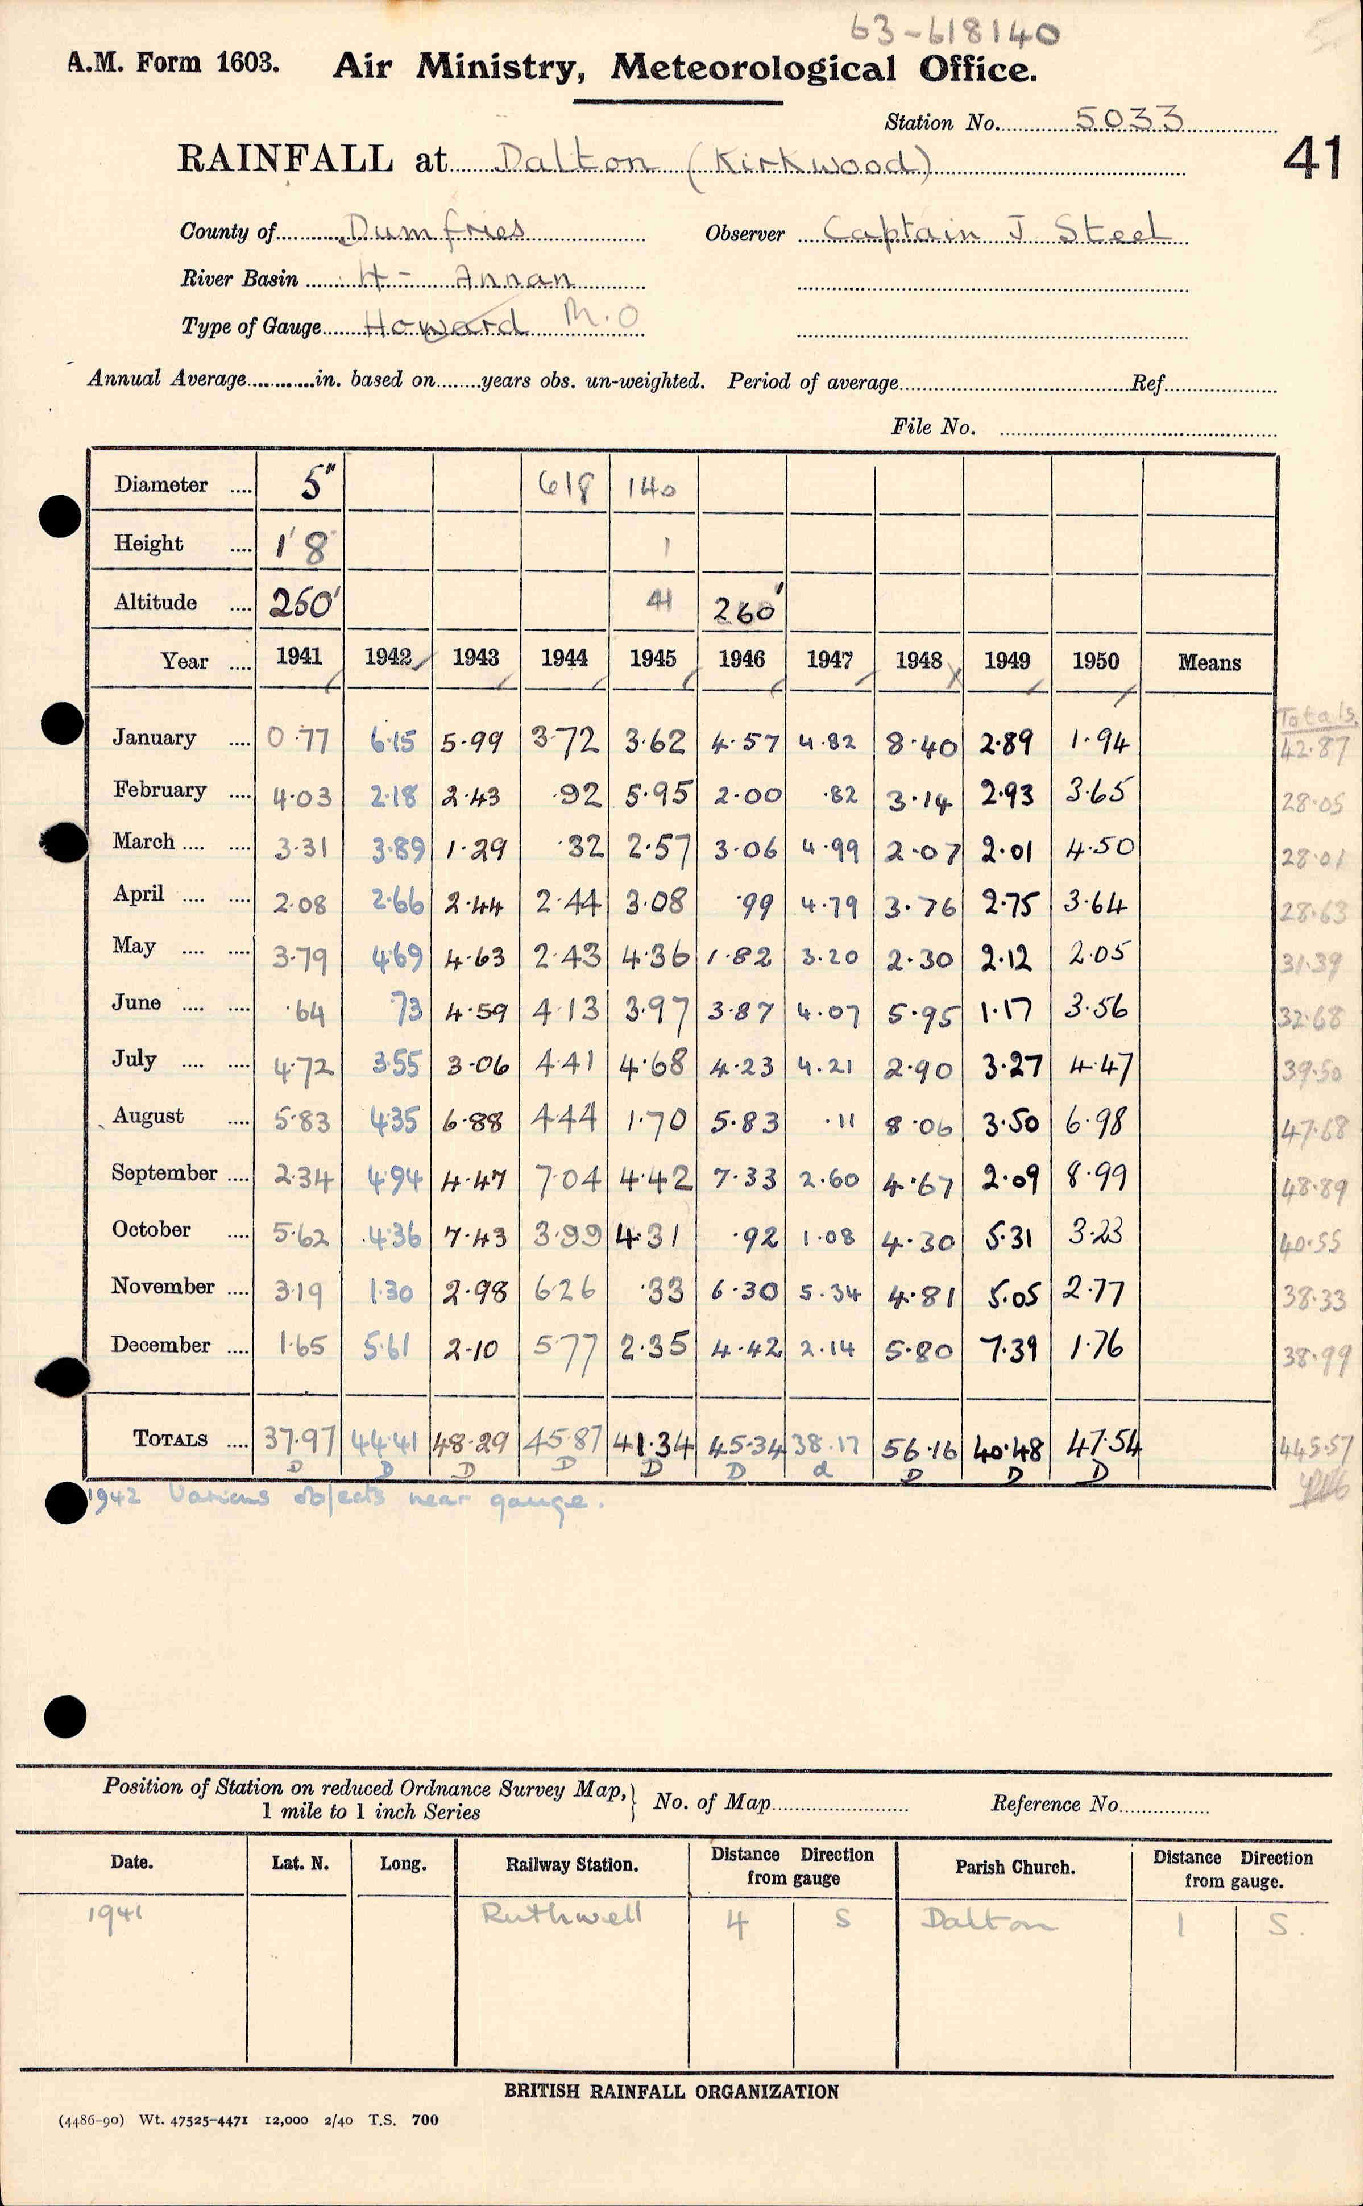 63-618140
A.M. Form 1603. Air Ministry, Meteorological Office.
Station No. 5033
RAINFALL at Dalton (Kirkwood)
41
County of Dumfries Observer Captain J Steel
River Basin H- Annan
Type of Gauge Howard M.O
Annual Average in. based on years obs. un-weighted. Period of average Ref.
File No.
Diameter 5" 618 140
Height 1' 8 1
Altitude 250' 41 260'
Year 1941 1942 1943 1944 1945 1946 1947 1948 1949 1950 Means
Totals.
January 0.77 6.15 5.99 3.72 3.62 4.57 4.82 8.40 2.89 1.94 42.87
February 4.03 2.18 2.43 .92 5.95 2.00 .82 3.14 2.93 3.65 28.05
March 3.31 3.89 1.29 .32 2.57 3.06 4.99 2.07 2.01 4.50 28.01
April 2.08 2.66 2.44 2.44 3.08 .99 4.79 3.76 2.75 3.64 28.63
May 3.79 4.69 4.63 2.43 4.36 1.82 3.20 2.30 2.12 2.05 31.39
June .64 73 4.59 4.13 3.97 3.87 4.07 5.95 1.17 3.56 32.68
July 4.72 3.55 3.06 4.41 4.68 4.23 4.21 2.90 3.27 4.47 39.50
August 5.83 4.35 6.88 4.44 1.70 5.83 .11 8.06 3.50 6.98 47.68
September 2.34 4.94 4.47 7.04 4.42 7.33 2.60 4.67 2.09 8.99 48.89
October 5.62 4.36 7.43 3.99 4.31 .92 1.08 4.30 5.31 3.23 40.55
November 3.19 1.30 2.98 6.26 .33 6.30 5.34 4.81 5.05 2.77 38.33
December 1.65 5.61 2.10 5.77 2.35 4.42 2.14 5.80 7.39 1.76 38.99
TOTALS 37.97 44.41 48.29 45.87 41.34 45.34 38.17 56.16 40.48 47.54 445.57
D D D D D D d D D D
1942 Various objects near gauge.
Position of Station on reduced Ordnance Survey Map, 1 mile to 1 inch Series No. of Map Reference No.
Date. Lat. N. Long. Railway Station. Distance Direction from gauge Parish Church. Distance Direction from gauge.
1941 Ruthwell 4 S Dalton 1 S.
BRITISH RAINFALL ORGANIZATION
(4486-90) Wt. 47525-4471 12,000 2/40 T.S. 700